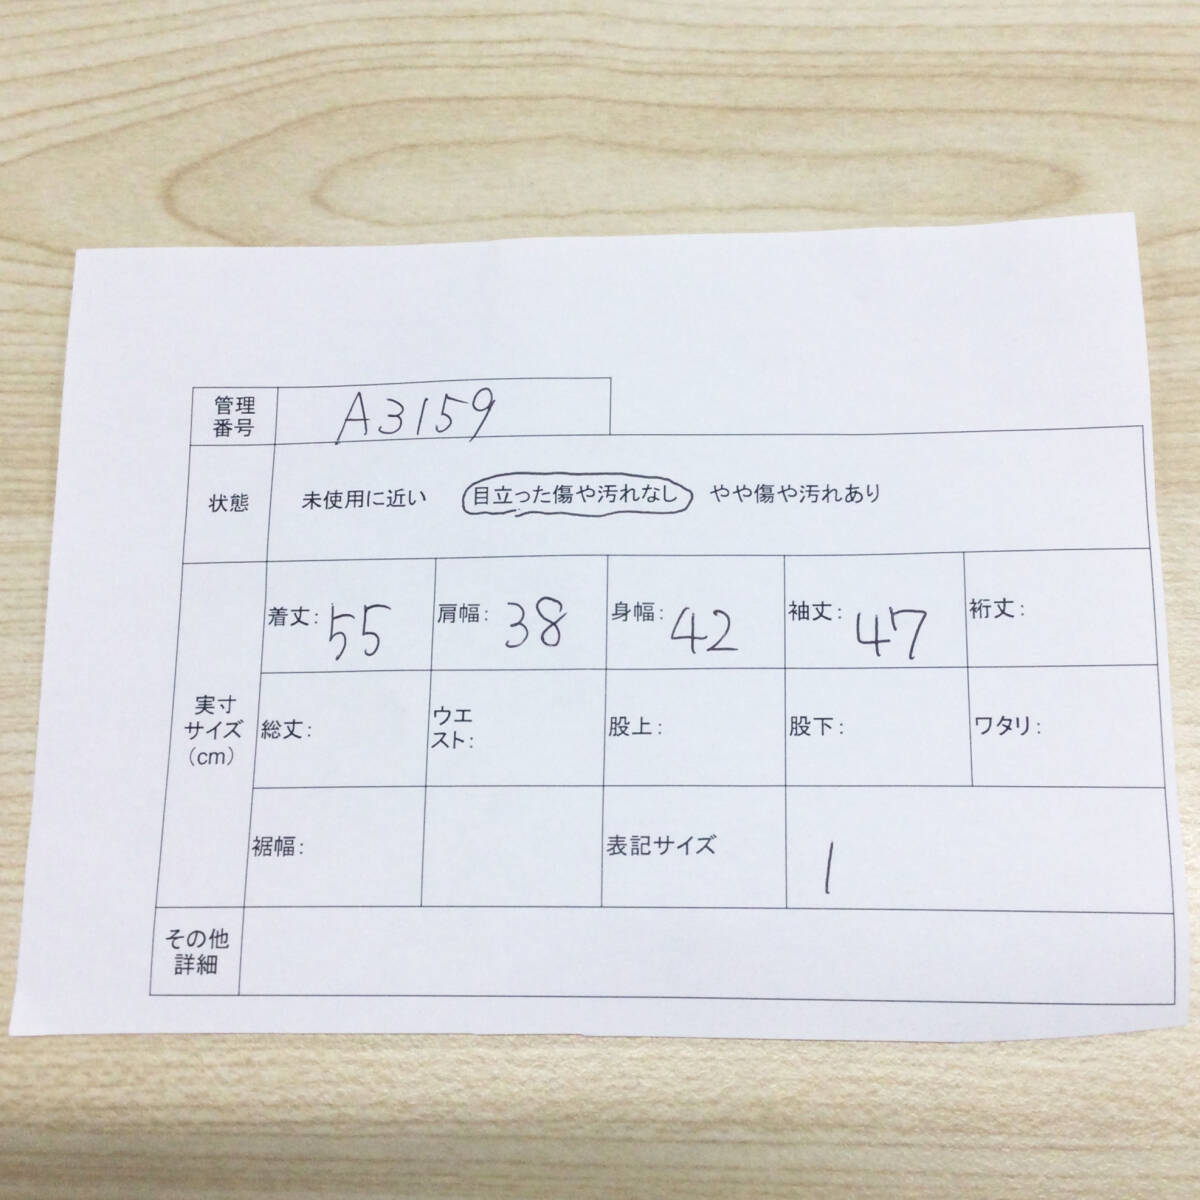 管理
番号
A3159
状態
未使用に近い 目立った傷や汚れなし やや傷や汚れあり
実寸
サイズ
(cm)
着丈: 55
肩幅: 38
身幅: 42
袖丈: 47
裄丈:
総丈:
ウエ
スト:
股上:
股下:
ワタリ:
裾幅:
表記サイズ
1
その他
詳細